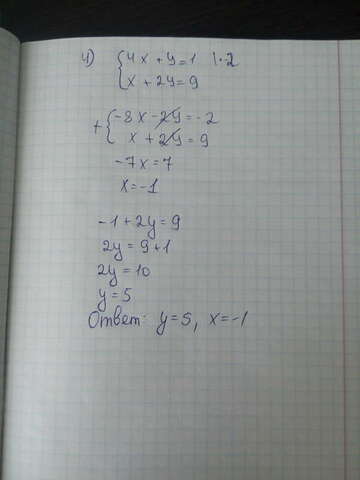 4) {4x + y = 1 | · 2
{x + 2y = 9
+ {-8x - 2y = -2
x + 2y = 9
-7x = 7
x = -1
-1 + 2y = 9
2y = 9 + 1
2y = 10
y = 5
Ответ: y = 5, x = -1